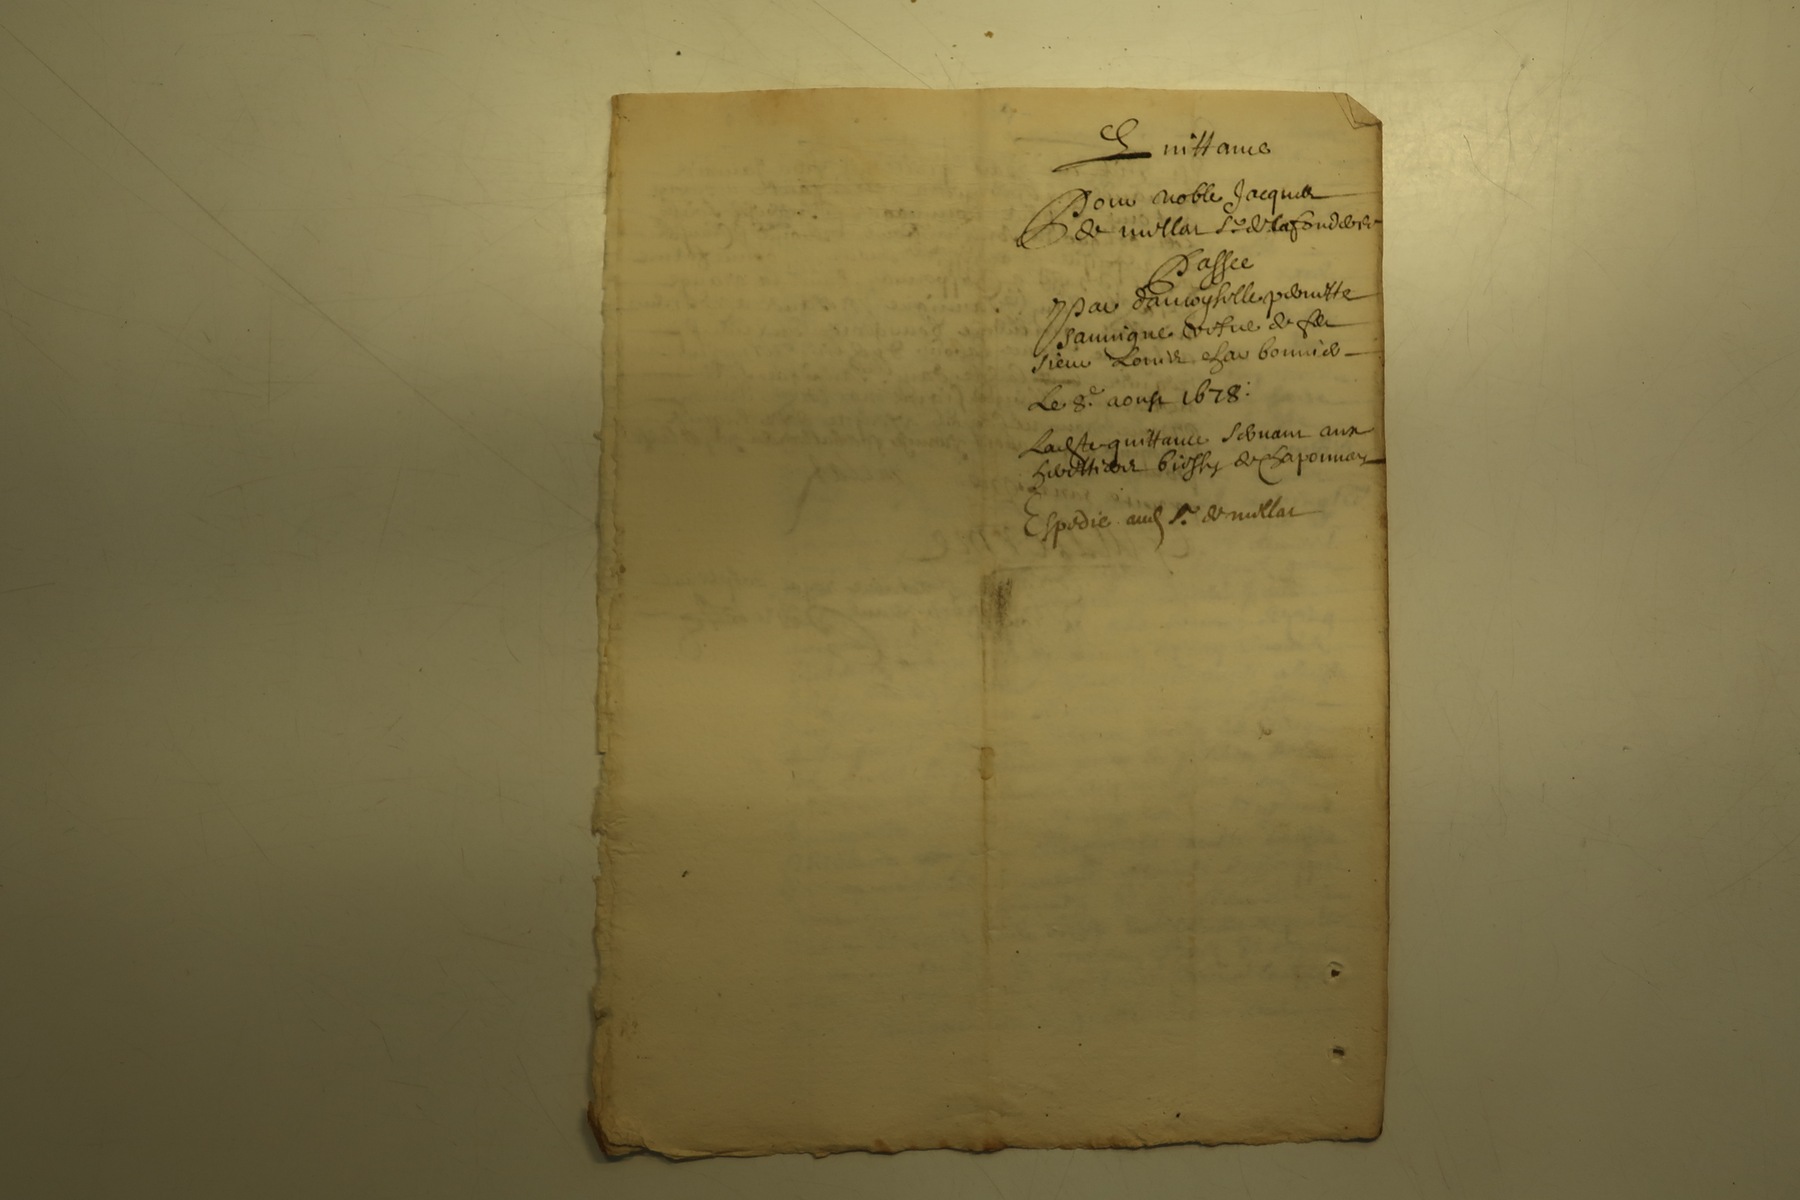 Quittance
Pour noble Jacques
de millar Sr de lafond
Passee
Par damoyselle pernitte
Jannigne vefve de feu
sieur Louis charbonnier
Le 8e aoust 1678.
Ladte quittance servant aux
herittiers de chaponnay
Expedie aud Sr de millar